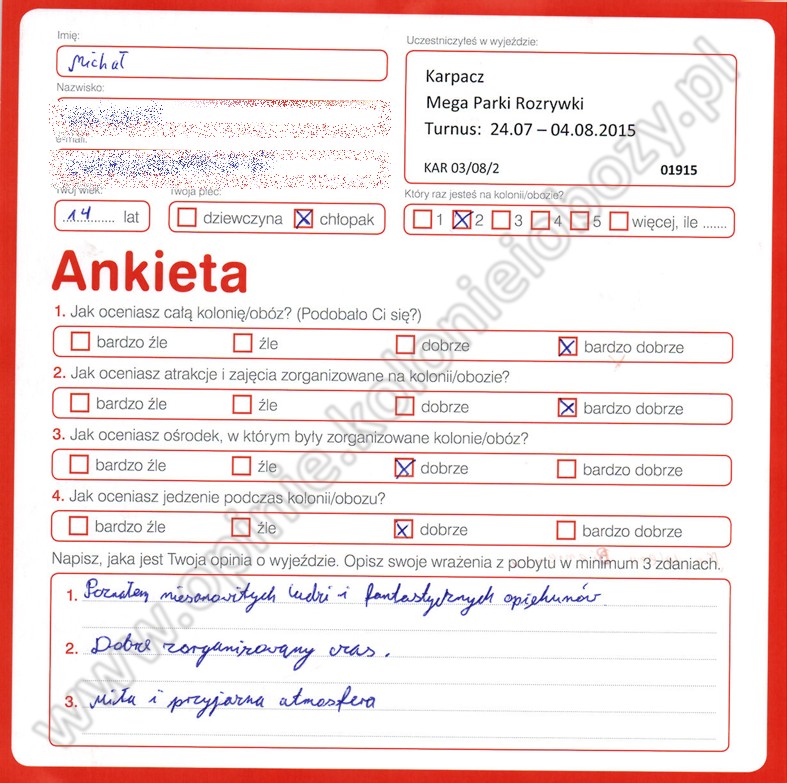 Imię:
Michał
Nazwisko:
e-mail:
Twój wiek:
14 lat
Twoja płeć:
dziewczyna chłopak
Uczestniczyłeś w wyjeździe:
Karpacz
Mega Parki Rozrywki
Turnus: 24.07 – 04.08.2015
KAR 03/08/2 01915
Który raz jesteś na kolonii/obozie?
1 2 3 4 5 więcej, ile .......
Ankieta
1. Jak oceniasz całą kolonię/obóz? (Podobało Ci się?)
bardzo źle źle dobrze bardzo dobrze
2. Jak oceniasz atrakcje i zajęcia zorganizowane na kolonii/obozie?
bardzo źle źle dobrze bardzo dobrze
3. Jak oceniasz ośrodek, w którym były zorganizowane kolonie/obóz?
bardzo źle źle dobrze bardzo dobrze
4. Jak oceniasz jedzenie podczas kolonii/obozu?
bardzo źle źle dobrze bardzo dobrze
Napisz, jaka jest Twoja opinia o wyjeździe. Opisz swoje wrażenia z pobytu w minimum 3 zdaniach.
1. Poznałem niesamowitych ludzi i fantastycznych opiekunów
2. Dobrze zorganizowany czas.
3. Miła i przyjazna atmosfera
www.opinie.kolonieiobozy.pl